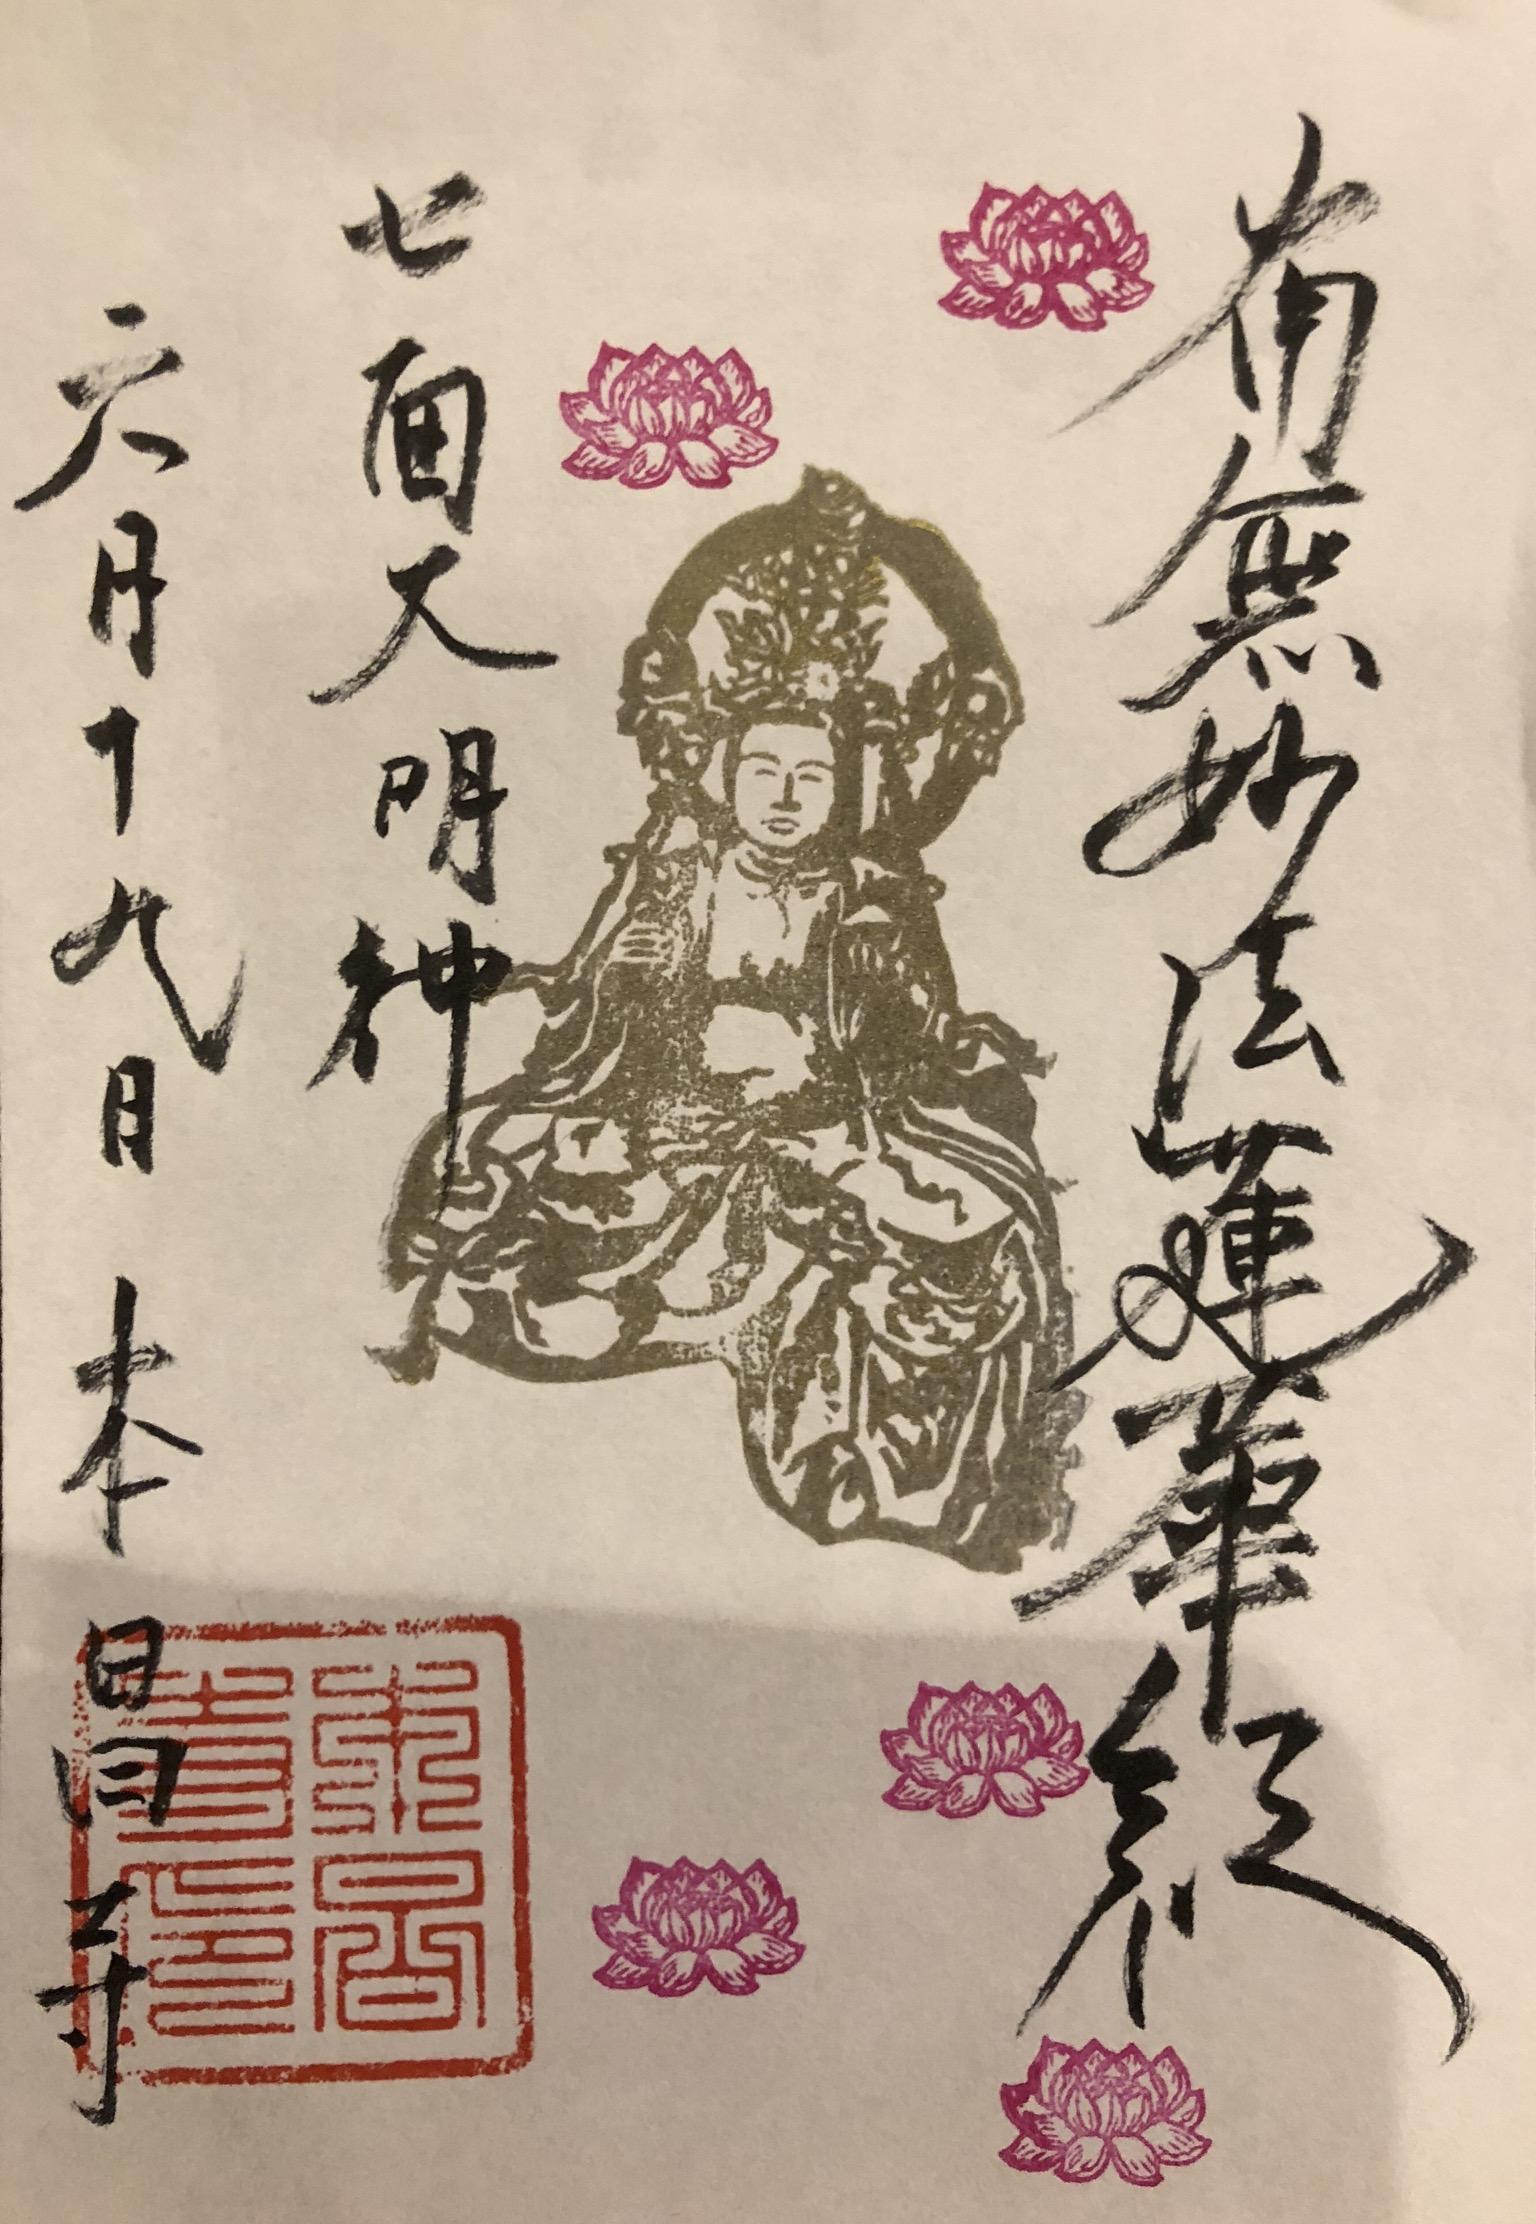 南無妙法蓮華経
七面大明神
六月十九日 本昌寺